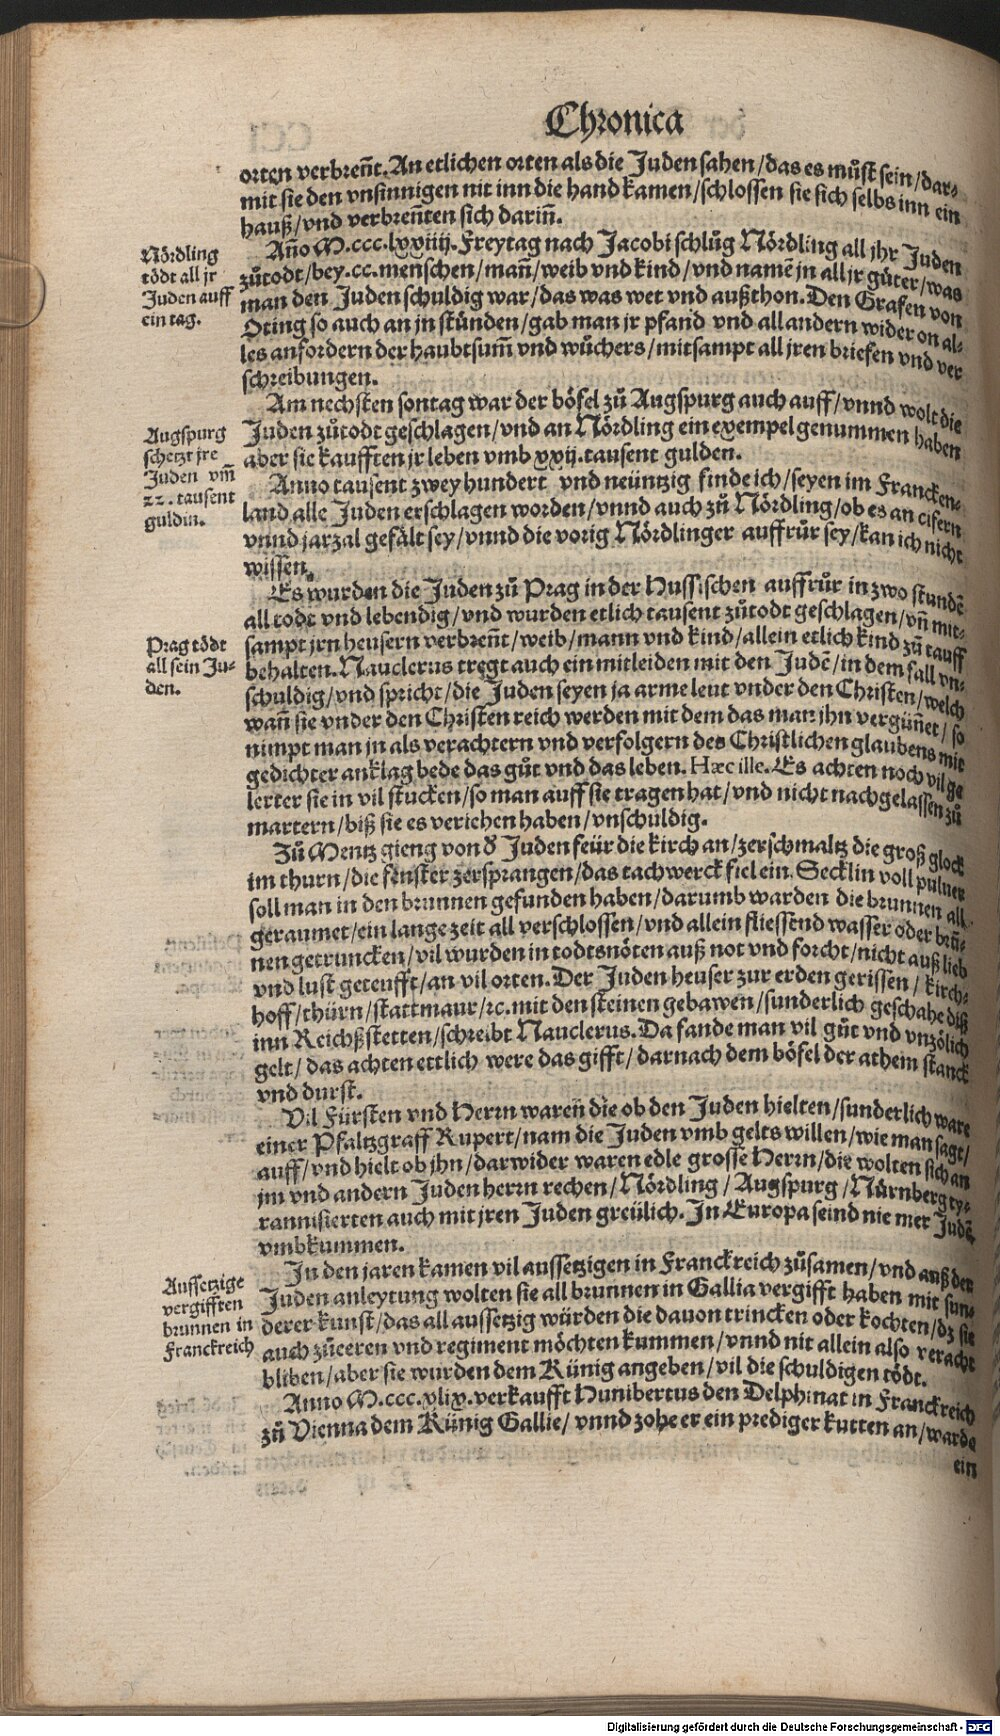 Chronica
orten verbreñt. An etlichen orten als die Juden sahen/das es můst sein/dar-
mit sie den vnsinnigen nit inn die hand kamen/schlossen sie sich selbs inn ein
hauß/vnd verbreñten sich dariñ.
Añno M.ccc.lxxiiij. Freytag nach Jacobi schlůg Nördling all jhr Juden
zůtodt/bey.cc.menschen/mañ/weib vnd kind/vnd namẽ jn all jr gůter/was
man den Juden schuldig war/das was wet vnd außthon. Den Grafen von
Oting so auch an jn stůnden/gab man jr pfand vnd all andern wider on al-
les anfordern der haubtsum̃ vnd wůchers/mitsampt all jren briefen vnd ver
schreibungen.
Nördling
tödt all jr
Juden auff
ein tag.
Am nechsten sontag war der böfel zů Augspurg auch auff/vnnd wolt die
Juden zůtodt geschlagen/vnd an Nördling ein exempel genummen haben
aber sie kaufften jr leben vmb xxij.tausent gulden.
Augspurg
schetzt jre
Juden vm̃
22. tausent
guldin.
Anno tausent zwey hundert vnd neüntzig finde ich/seyen im Francken-
land alle Juden erschlagen worden/vnnd auch zů Nördling/ob es an cifern
vnnd jarzal gefält sey/vnnd die vorig Nördlinger auffrůr sey/kan ich nicht
wissen.
Es wurden die Juden zů Prag in der Hussischen auffrůr in zwo stundẽ
all todt vnd lebendig/vnd wurden etlich tausent zůtodt geschlagen/vñ mit-
sampt jrn heusern verbreñt/weib/mann vnd kind/allein etlich kind zů tauff
behalten. Nauclerus tregt auch ein mitleiden mit den Judẽ/in dem fall vn-
schuldig/vnd spricht/die Juden seyen ja arme leut vnder den Christen/welch
wañ sie vnder den Christen reich werden mit dem das man jhn vergüñet/so
nimpt man jn als verachtern vnd verfolgern des Christlichen glaubens mit
gedichter anklag bede das gůt vnd das leben. Hæc ille. Es achten noch vil ge
lerter sie in vil stucken/so man auff sie tragen hat/vnd nicht nachgelassen zů
martern/biß sie es veriehen haben/vnschuldig.
Prag tödt
all sein Ju-
den.
Zů Mentz gieng von d̕ Juden feür die kirch an/zerschmaltz die groß glock
im thurn/die fenster zersprangen/das tachwerck fiel ein. Secklin voll puluer
soll man in den brunnen gefunden haben/darumb warden die brunnen all
geraumet/ein lange zeit all verschlossen/vnd allein fliessend wasser oder brů-
nen getruncken/vil wurden in todtsnöten auß not vnd forcht/nicht auß lieb
vnd lust geteufft/an vil orten. Der Juden heuser zur erden gerissen/kirch-
hoff/thürn/stattmaur/ꝛc. mit den steinen gebawen/sunderlich geschahe diß
inn Reichßstetten/schreibt Nauclerus. Da fande man vil gůt vnd vnzölich
gelt/das achten ettlich were das gifft/darnach dem böfel der athem stanck
vnd durst.
Vil Fürsten vnd Herrn waren die ob den Juden hielten/sunderlich ware
einer Pfaltzgraff Rupert/nam die Juden vmb gelts willen/wie man sagt/
auff/vnd hielt ob jhn/darwider waren edle grosse Herrn/die wolten sich an
jm vnd andern Juden herrn rechen/Nördling/Augspurg/Nůrnberg ty-
rannisierten auch mit jren Juden greülich. In Europa seind nie mer Judẽ
vmbkummen.
In den jaren kamen vil aussetzigen in Franckreich zůsamen/vnd auß der
Juden anleytung wolten sie all brunnen in Gallia vergifft haben mit sun-
derer kunst/das all aussetzig würden die dauon trincken oder kochten/dz sie
auch zů eeren vnd regiment möchten kummen/vnnd nit allein also veracht
bliben/aber sie wurden dem Künig angeben/vil die schuldigen tödt.
Aussetzige
vergifften
brunnen in
Franckreich
Anno M.ccc.xlix. verkaufft Hunibertus den Delphinat in Franckreich
zů Vienna dem Künig Gallie/vnnd zohe er ein prediger kutten an/warde
ein
Digitalisierung gefördert durch die Deutsche Forschungsgemeinschaft - DFG